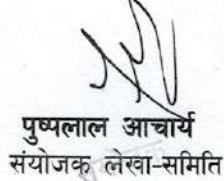 पुष्पलाल आचार्य
संयोजक लेखा-समिति